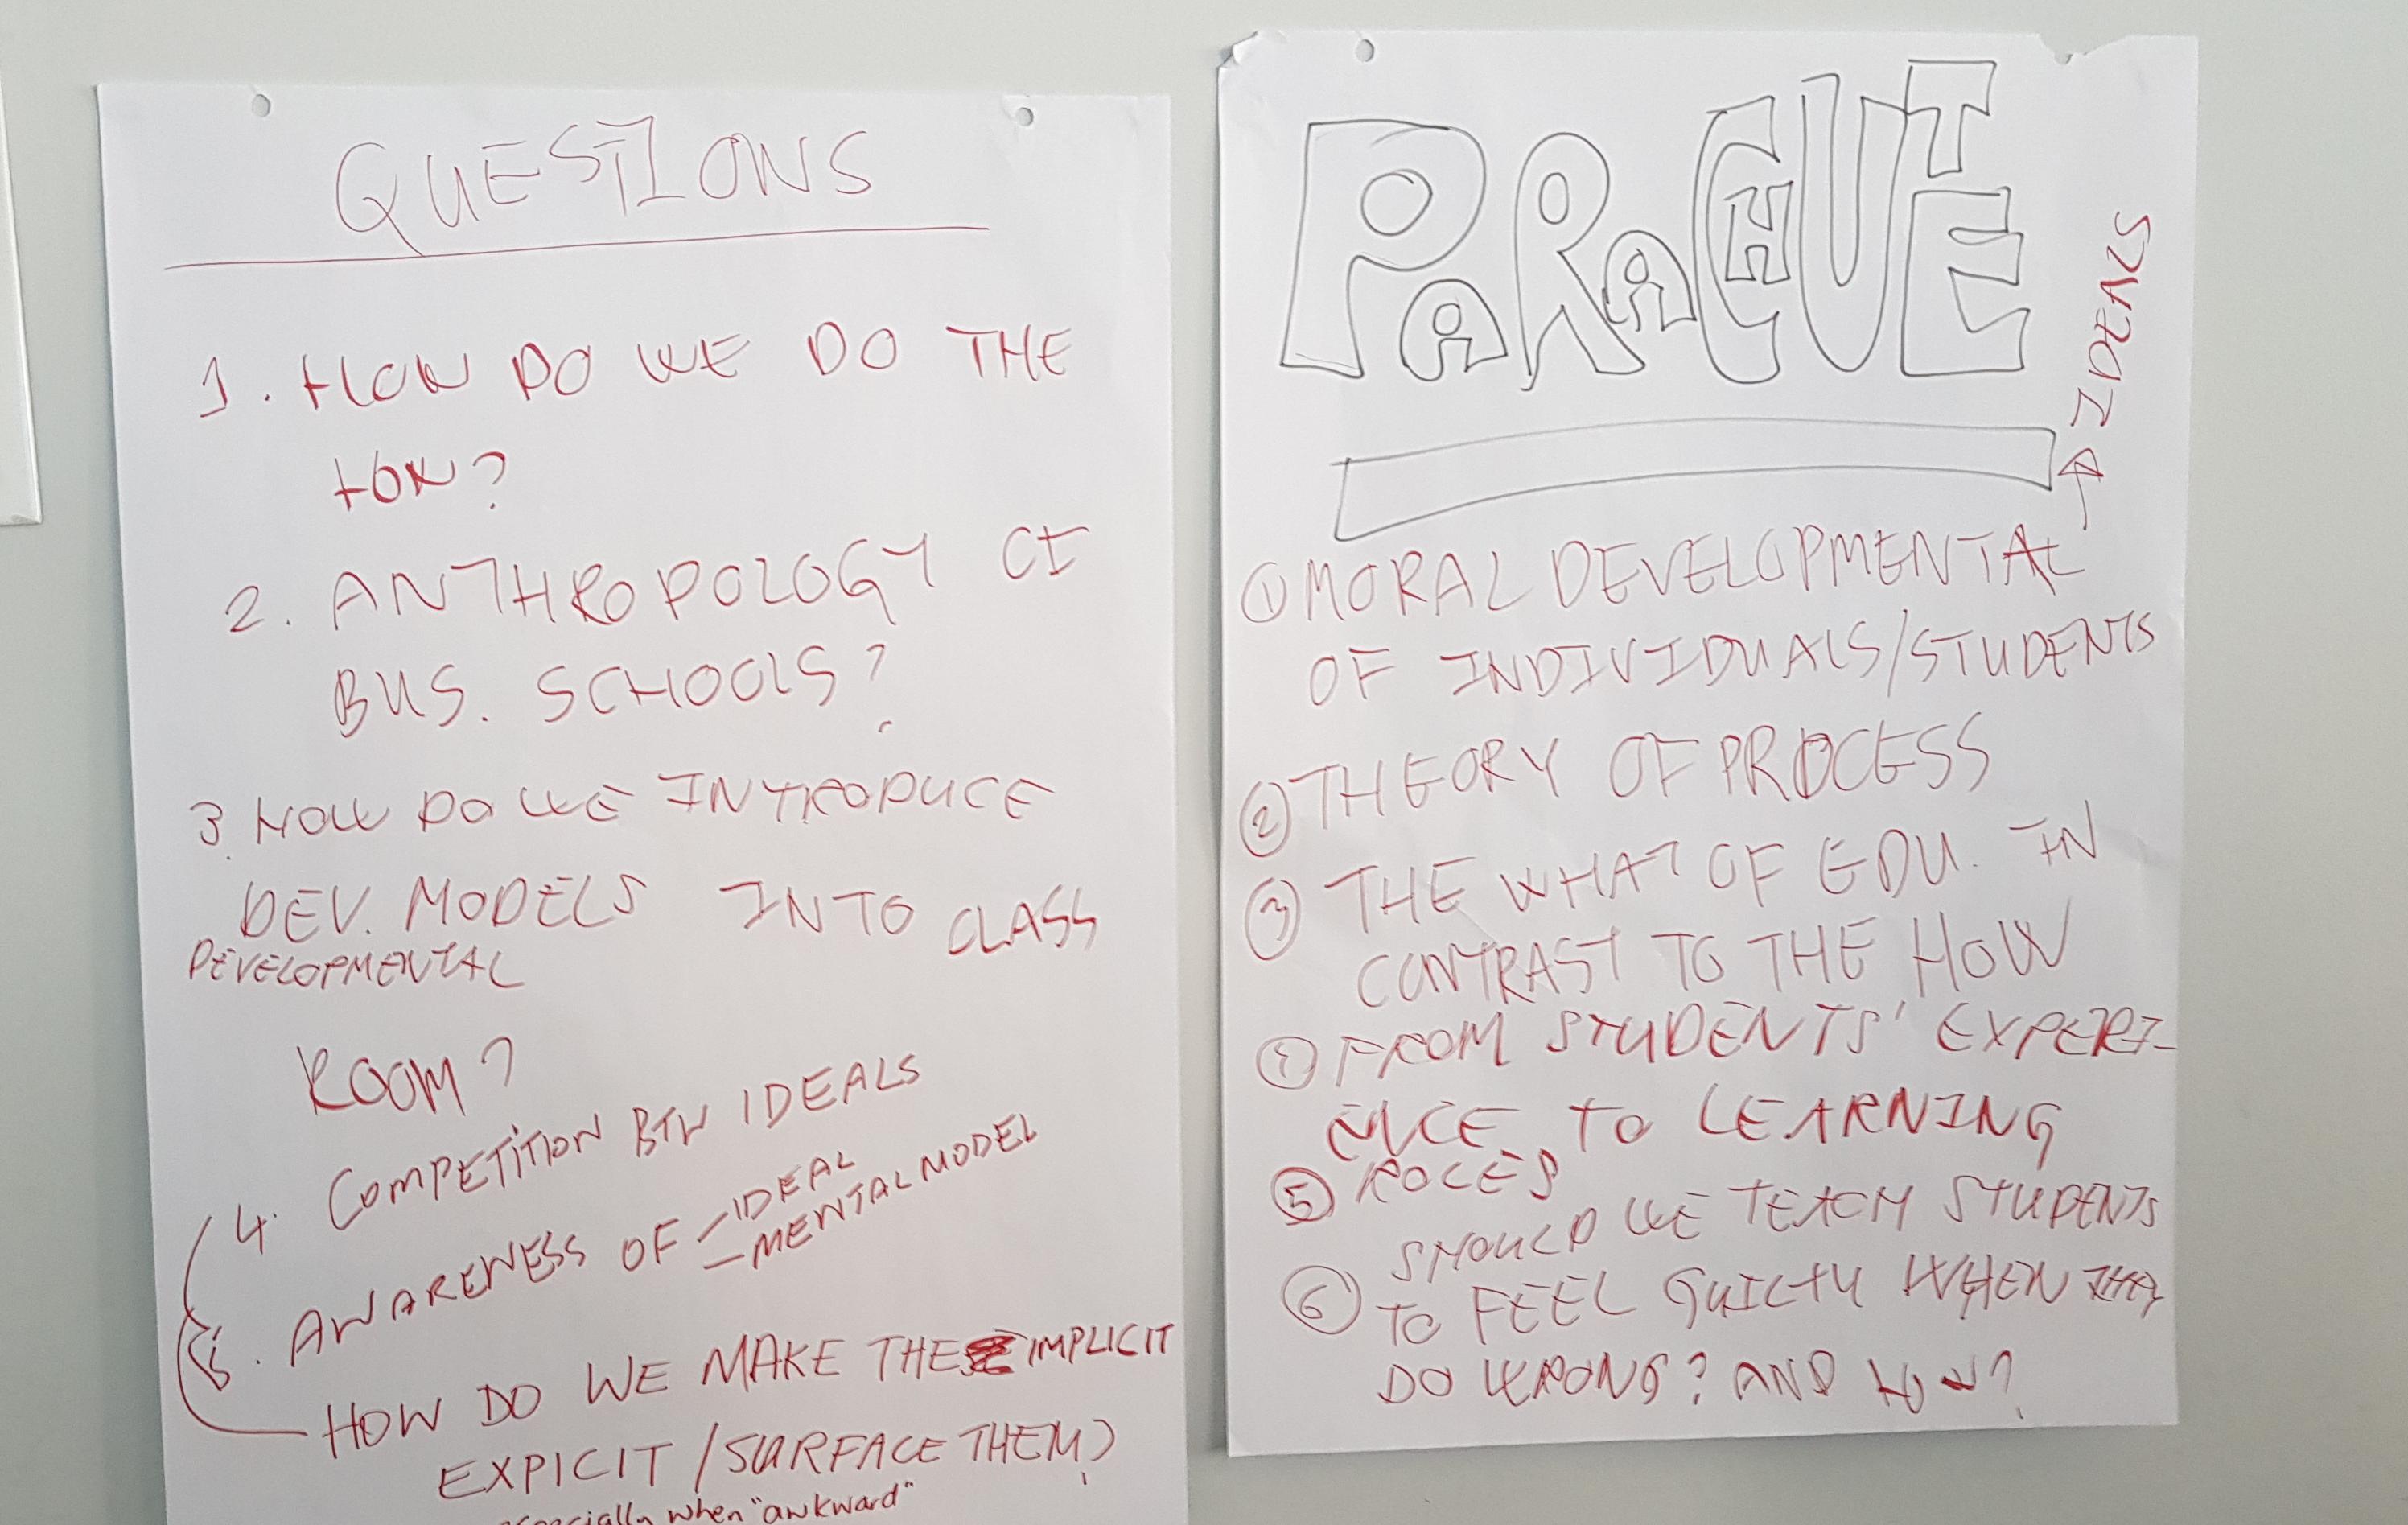 QUESTIONS
1. HOW DO WE DO THE
HOW?
2. ANTHROPOLOGY OF
BUS. SCHOOLS?
3. HOW DO WE INTRODUCE
DEV. MODELS INTO CLASS
DEVELOPMENTAL
ROOM?
4. COMPETITION BTW IDEALS
5. AWARENESS OF - IDEAL
- MENTAL MODEL
HOW DO WE MAKE THE IMPLICIT
EXPICIT / SURFACE THEM?
especially when "awkward"
PARACHUTE
IDEALS
① MORAL DEVELOPMENTAL
OF INDIVIDUALS/STUDENTS
② THEORY OF PROCESS
③ THE WHAT OF EDU. IN
CONTRAST TO THE HOW
④ FROM STUDENTS' EXPERI-
ENCE TO LEARNING
⑤ ROLES
SHOULD WE TEACH STUDENTS
⑥ TO FEEL GUILTY WHEN THEY
DO WRONG? AND HOW?